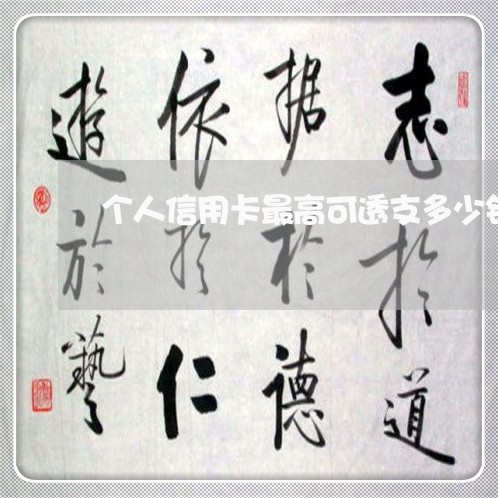 志扵道
据扵德
依扵仁
遊於藝
个人信用卡最高可透支多少